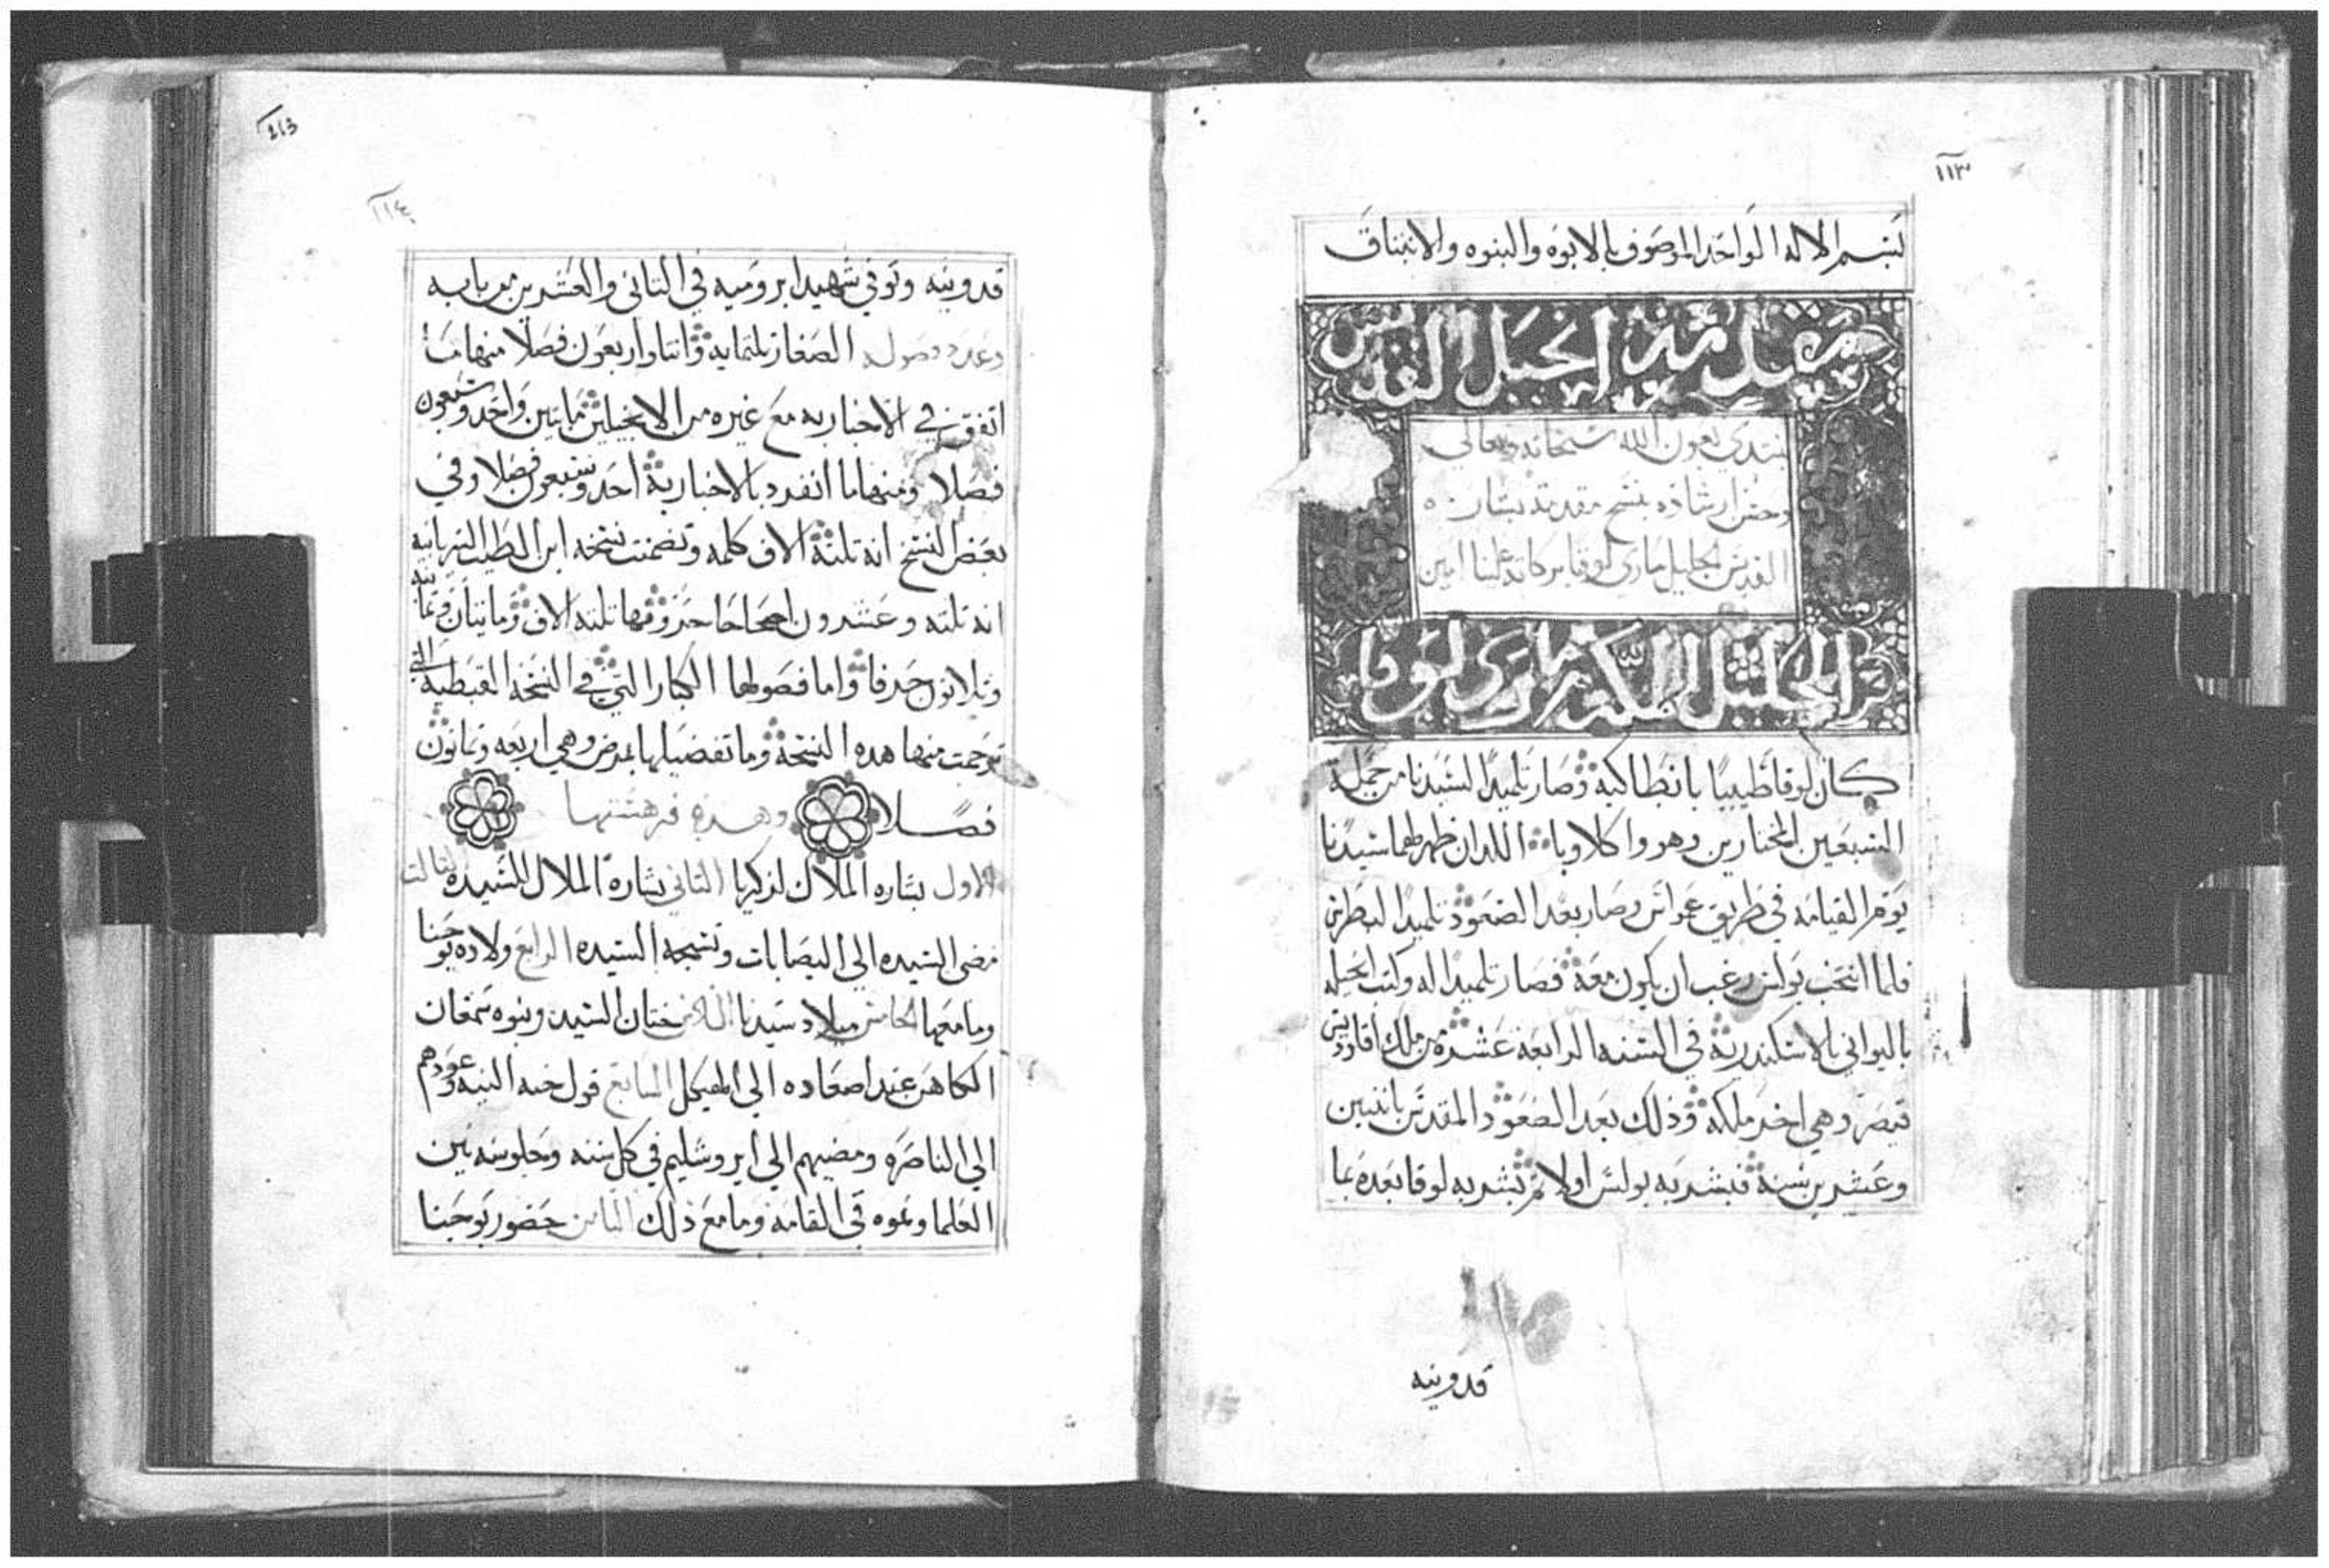 ١١٣
بسم الاله الواحد الموصوف بالابوه والبنوه والانبثاق
مقدمة انجيل القديس
نبتدي بعون الله سبحانه وتعالى
وحسن ارشاده بنسخ مقدمة بشارة
القديس الجليل ماري لوقا بركاته علينا امين
الجليل المكرم ماري لوقا
كان لوقا طبيبًا بانطاكيه وصار تلميدًا لسيدنا من جملة
السبعين المختارين وهو واكلاوبا اللدان ظهر لهما سيدنا
يوم القيامه في طريق عمواس وصار بعد الصعود تلميدا لبطرس
فلما انتخب بولس رغب ان يكون معه فصار تلميدا له وكتب انجيله
باليواني بالاسكندرية في السنه الرابعة عشره من ملك اقلوديس
قيصر وهي اخر ملكه وذلك بعد الصعود المقدس باثنين
وعشرين سنة فبشر به بولس اولا ثم بشر به لوقا بعده بما
قدونيه
113
١١٤
قدونيه وتوفي شهيدا برومية في الثاني والعشرين من بابه
وعدد فصوله الصغار تلتمايه واتنا واربعون فصلا منها ما
اتفق في الاخبار به مع غيره من الانجيليين مايتين واحد وسبعون
فصلا ومنها ما انفرد بالاخبار به احد وسبعون فصلا وفي
بعض النسخ انه تلتة الاف كلمه وتضمنت نسخه ابن الطيب السريانيه
انه تلته وعشرون اصحاحا حروفها تلته الاف ومايتان وتمانيه
وتلاتون حرفا واما فصولها الكبار التي في النسخه القبطيه التي
ترجمت منها هده النسخة وما تفضيلها بمرض وهي اربعه وتمانون
فصلا وهده فرهستها
الاول بشاره الملاك لزكريا التاني بشارة الملاك للسيده التالت
مضى السيده الى اليصابات وتسبحه السيده الرابع ولاده يوحنا
وما معها الخامس ميلاد سيدنا السادس ختان السيد ونبوه سمعان
الكاهن عند اصعاده الى الهيكل السابع قول حنه النبيه وعودهم
الى الناصره ومضيهم الى ايروشليم في كل سنه وجلوسه بين
العلما ونموه في القامة وما مع ذلك التامن حضور يوحنا